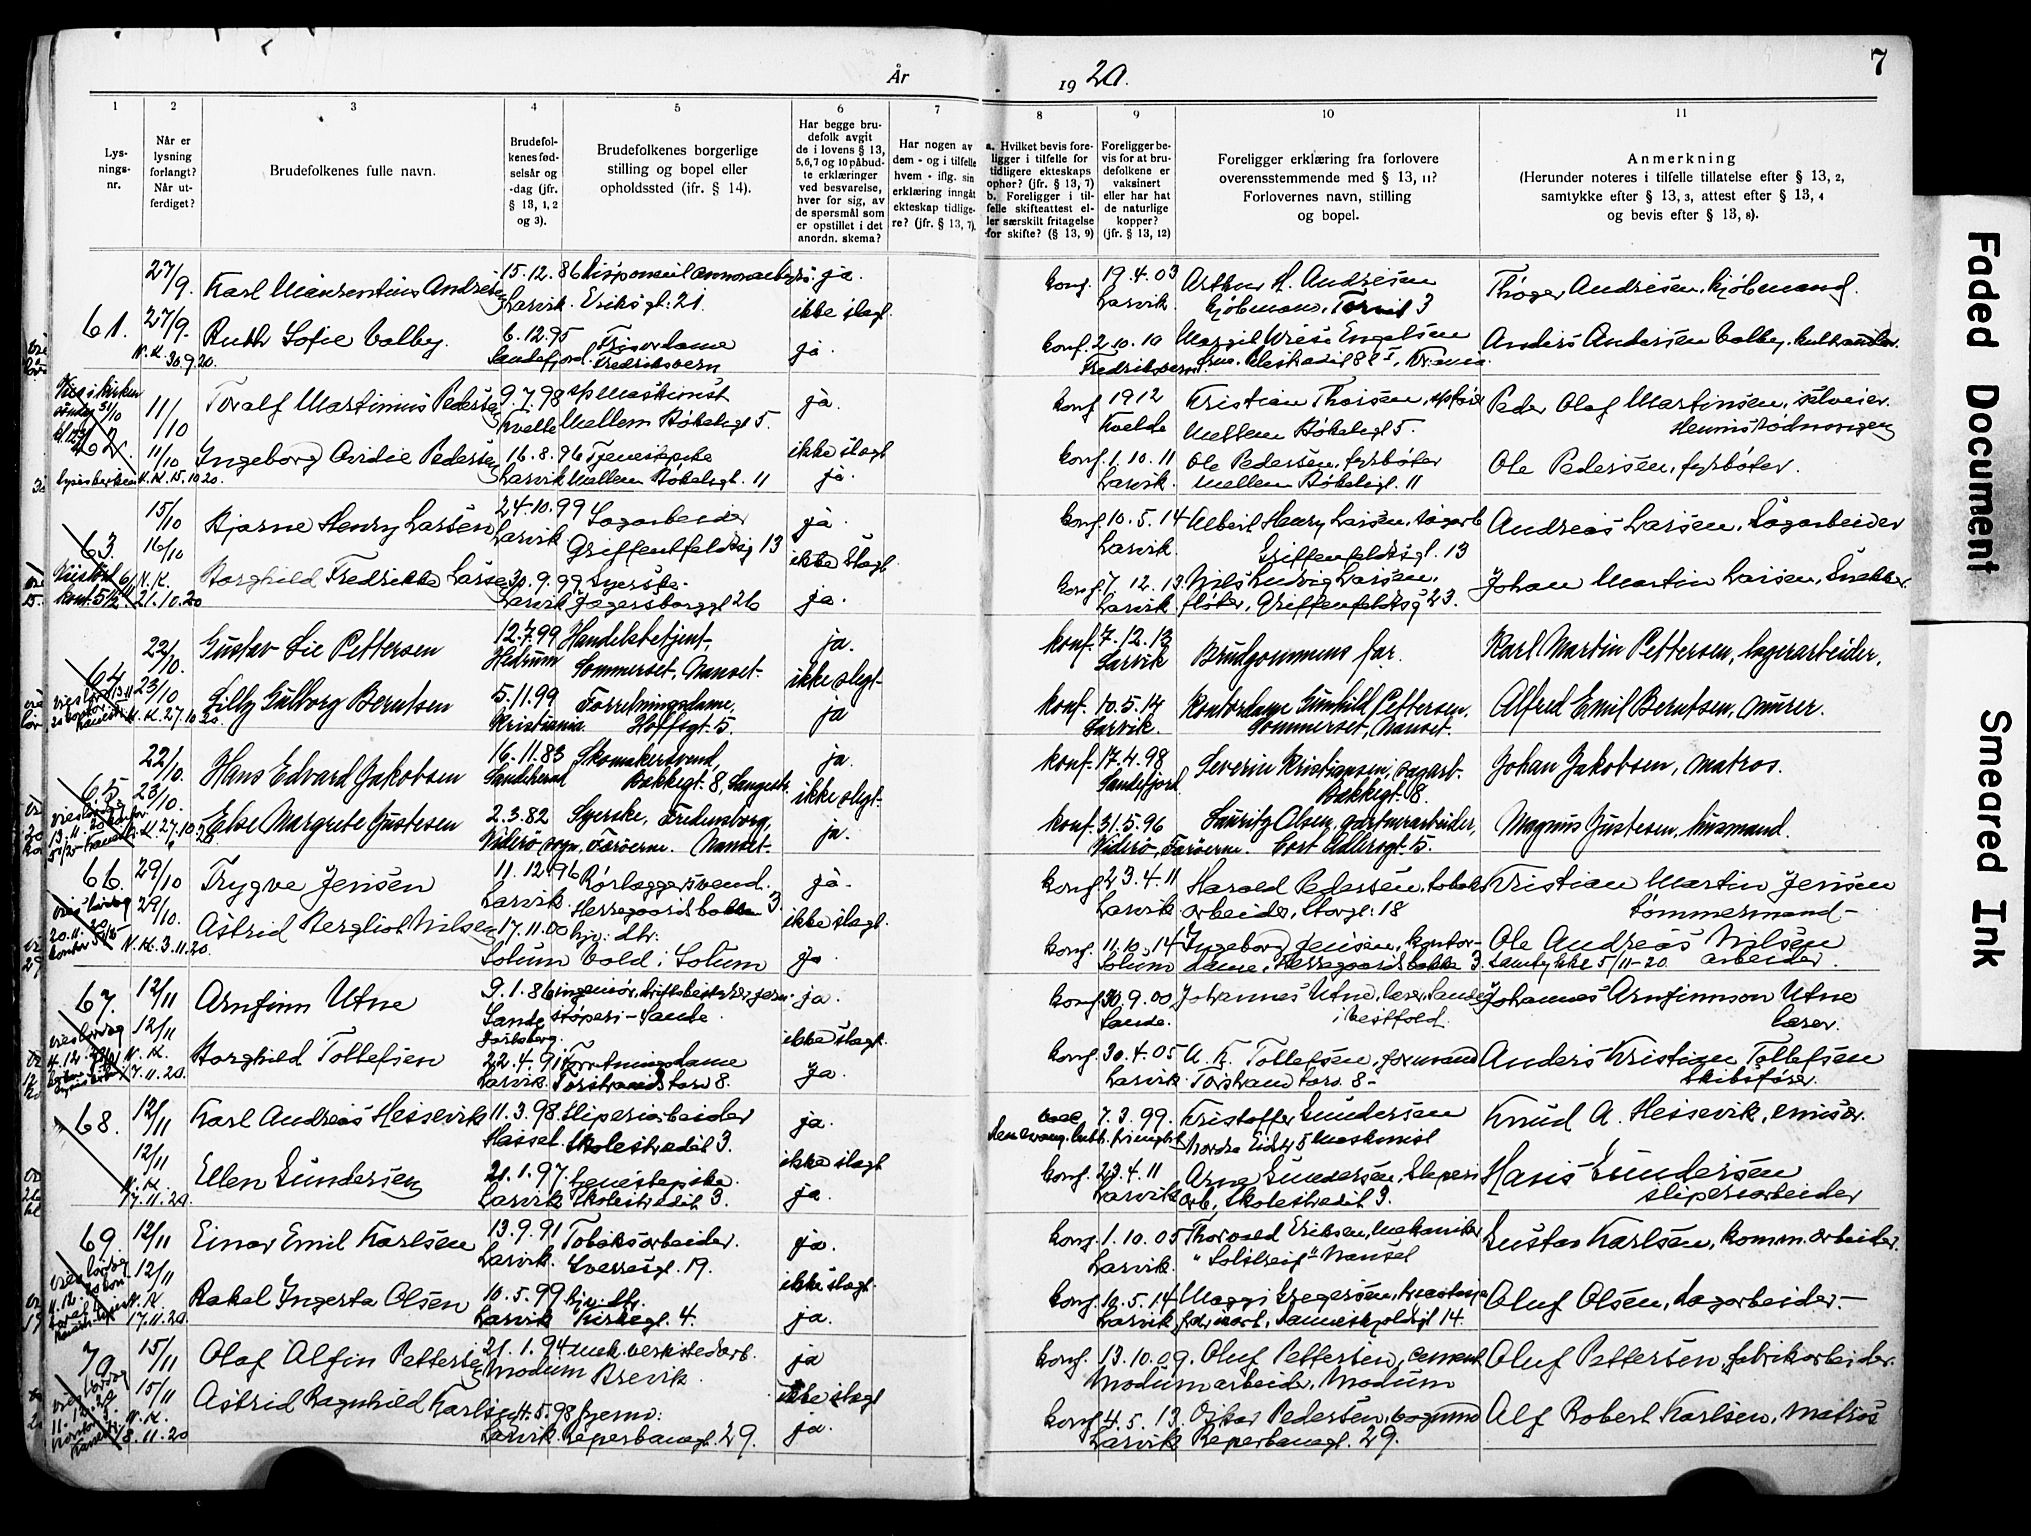 År 1920.
7
1 2 3 4 5 6 7 8 9 10 11
Lys-
nings-
nr.
Når er
lysning
forlangt?
Når ut-
ferdiget?
Brudefolkenes fulle navn.
Brudefol-
kenes fød-
selsår og
-dag (jfr.
§ 13, 1, 2
og 3).
Brudefolkenes borgerlige
stilling og bopel eller
opholdssted (ifr. § 14).
Har begge bru-
defolk avgit
de i lovens § 13,
5,6,7 og 10 påbud-
te erklæringer
ved besvarelse,
hver for sig, av
de spørsmål som
er opstillet i det
anordn. skema?
Har nogen av
dem - og i tilfelle
hvem - iflg. sin
erklæring inngått
ekteskap tidlige-
re? (jfr. § 13, 7).
a. Hvilket bevis fore-
ligger i tilfelle for
tidligere ekteskaps
ophør? (jfr. § 13, 7)
b. Foreligger i til-
felle skifteattest el-
ler særskilt fritagelse
for skifte? (§ 13, 9)
Foreligger be-
vis for at bru-
defolkene er
vaksinert
eller har hat
de naturlige
kopper?
(jfr. § 13, 12)
Foreligger erklæring fra forlovere
overensstemmende med § 13, 11?
Forlovernes navn, stilling
og bopel.
Anmerkning
(Herunder noteres i tilfelle tillatelse efter § 13, 2,
samtykke efter § 13, 3, attest efter § 13, 4
og bevis efter § 13, 8).
27/9. Karl Andresen 15.12.86 ja. konf. 19.4.03 Arthur H. Andresen Thøger Andresen, kjøbmand.
Larvik. Eriksgt. 21. ikke slegt. Larvik kjøbmann, Torvet 3
61. 27/9. Ruth Sofie Valby. 6.12.95 Frisørdame ja. konf. 2.10.10 Engelsen Anders Andersen Valby, kulhandler.
N.K. 30.9.20. Sandefjord. Fredriksvern Fredriksvern
11/10 Toralf Martinius Pedersen 9.7.98 Maskinist ja. konf. 1912 Kristian Thorsen, Peder Olaf Martinsen, selveier.
Kvelle Mellem Bøkeligt 5. Kvelde Mellem Bøkeligt 5.
62. 11/10 Ingeborg Ovidie Pedersen 16.8.96 Tjenestepike ikke slegt konf. 1.10.11 Ole Pedersen, fyrbøter Ole Pedersen, fyrbøter.
N.K. 15.10.20. Larvik Mellem Bøkeligt. 11 ja. Larvik. Mellem Bøkeligt. 11
15/10 Bjarne Henry Larsen 24.10.99 Sagarbeider ja. konf. 10.5.14 Albert Henry Larsen, sagarb Andreas Larsen, Sagarbeider
63. 16/10 Larvik. Griffenfeldtsg 13 ikke slegt. Larvik. Griffenfeldtsgt. 13
N.K. Borghild Fredrikke Larsen 30.9.99 Syerske. konf. 7.12.13 Nils Ludvig Larsen, Johan Martin Larsen, Snekker
21.10.20 Larvik Jegersborggt 26 ja. Larvik fløter, Griffenfeldtsg 23.
22/10. Gustav Lie Pettersen 12.7.99 Handelsbetjent, ja. konf. 7.12.13 Brudgommens far. Karl Martin Pettersen, lagerarbeider.
Hedrum Sommerset, Nanset. ikke slegt. Larvik
64 23/10 Lilly Gulborg Berntsen 5.11.99 Forretningsdame, ja konf. 10.5.14 Kontordame Gunhild Pettersen, Alfred Emil Berntsen, murer.
N.K. 27.10.20. Kristiania Hoffsgt. 5. Larvik. Sommerset, Nanset.
22/10. Hans Edvard Jakobsen 16.11.83 Skomakersvend, ja. konf. 17.4.98 Severin Kristiansen, sagarb. Johan Jakobsen, matros.
Sandeherred Bakkegt. 8, Langestr. ikke slegt. Sandefjord Bakkegt. 8.
65. 23/10. Else Margrete Justesen 2.3.82 Syerske, Fredensborg, ja. konf. 31.5.96 Lauritz Olsen, gartnerarbeider, Magnus Justesen, husmand.
N.K. 27.10.20. Viderø sogn, Færøerne. Nanset. Viderø, Færøerne. Cort Adlersgt. 5.
66. 29/10 Trygve Jensen 11.12.96 Rørlæggersvend. ja. konf. 23.4.11 Harald Pedersen, tobaks Kristian Martin Jensen
Larvik. Herregaardsbakken 3. ikke slegt. Larvik arbeider, Storgt. 18 tømmermand-
29/10. Astrid Bergliot Nilsen 17.11.00 hjv. dtr. konf. 11.10.14 Ingeborg Jensen, kontor- Ole Andreas Nilsen
N.K. 3.11.20. Solum Vold i Solum ja. Solum dame, Herregaardsbakke 3. Samtykke 5/11-20. arbeider.
67. 12/11 Arnfinn Utne 9.1.86 ingeniør, driftsbestyrer jern- ja. konf. 30.9.00 Johannes Utne, lærer, Sande Johannes Arnfinnson Utne
Sande støperi - Sande. ikke slegt. Sande. i Vestfold. lærer.
Jarlsberg.
12/11 N.K. Borghild Tollefsen 22.4.91 Forretningsdame konf. 30.4.05 A. K. Tollefsen, formand Anders Kristian Tollefsen
17.11.20. Larvik. Torstrand torv 8. Ja. Larvik. Torstrand torv. 8- Skibsfører.
68. 12/11 Karl Andreas Hessevik 11.3.98. Sliperiarbeider ja. 7.3.99. Kristoffer Gundersen Knud A. Hessevik, emissær.
Skolestrædet 3. Maskinist
12/11 Ellen Gundersen 21.1.97. Tjenestepike ikke slegt konf. 23.4.11 Arne Gundersen, Sliperi Hans Gundersen
N.K. 17.11.20. Larvik Skolestrædet 3. ja. Larvik arb, Skolestrædet 3. sliperiarbeider
69 12/11 Einar Emil Karlsen 13.9.91 Tobaksarbeider. ja. konf. 1.10.05 Thorvald Eriksen, Mekaniker Gustav Karlsen, komm.arbeider.
Larvik. Sverresgt. 19. ikke slegt. Larvik. "Solstreif" Nanset
12/11 Rakel Ingerta Olsen 10.5.99 hjv. dtr. konf. 10.5.14 Maggi Gregersen, Oluf Olsen, dagarbeider.-
N.K. 17.11.20. Larvik Kirkegt. 4. ja. Larvik
70 15/11 Olaf Alfin Pettersen 21.1.94 mek. verkstedarb. ja konf. 13.10.09. Oluf Pettersen, cement Oluf Pettersen, fabrikarbeider.
Modum Brevik. ikke slegt Modum arbeider, Modum
15/11 Astrid Ragnhild Karlsen 4.5.98 hjemv: konf. 4.5.13. Oskar Pedersen, Alf Robert Karlsen, Matros
N.K. 18.11.20 Larvik. Reperbanegt. 29. ja. Larvik Reperbanegt. 29.
Faded Document
Smeared Ink